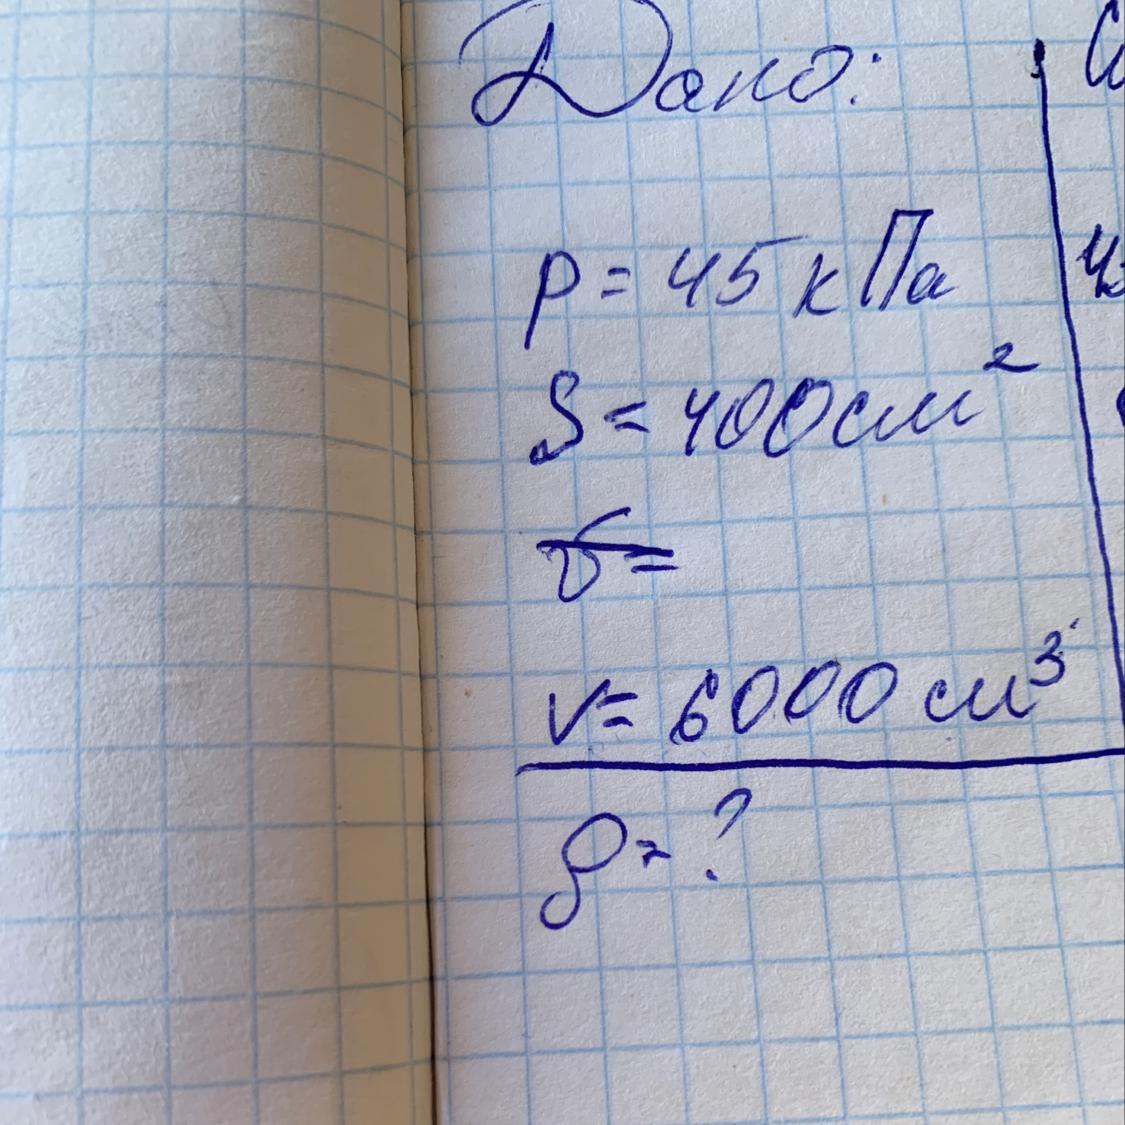 Дано:
p = 45 кПа
S = 400 см²
v = 6000 см³
ρ = ?